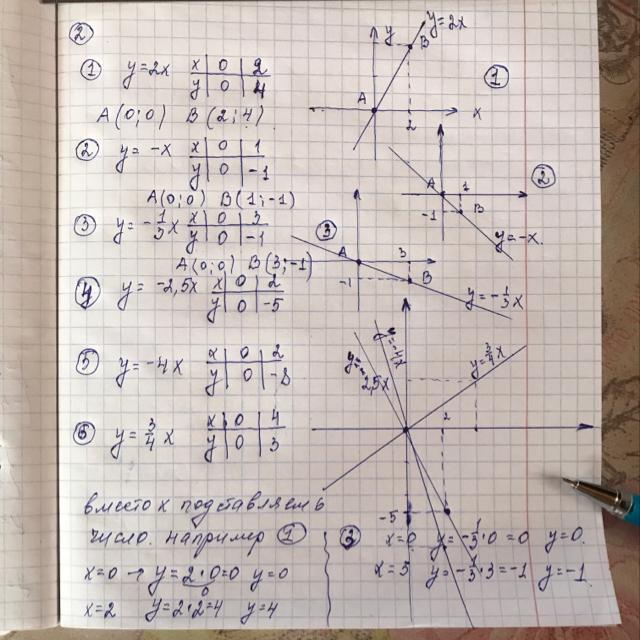 ②
① y=2x x 0 2
y 0 4
A(0;0) B(2;4)
② y= -x x 0 1
y 0 -1
A(0;0) B(1;-1)
③ y=-1/3x x 0 3
y 0 -1
A(0;0) B(3;-1)
④ y= -2,5x x 0 2
y 0 -5
⑤ y= -4x x 0 2
y 0 -8
⑥ y= 3/4x x 0 4
y 0 3
вместо x подставляем
число. например ①
x=0 → y=2·0=0 y=0
x=2 y=2·2=4 y=4
y y=2x
B
A
2 x
①
②
A 1
-1 B
y=-x
③
A 3
-1 B
y=-1/3x
y=-4x
y=-2,5x
y=3/4x
2
-5
③ x=0 y=-1/3·0=0 y=0.
x=3 y=-1/3·3=-1 y=-1.